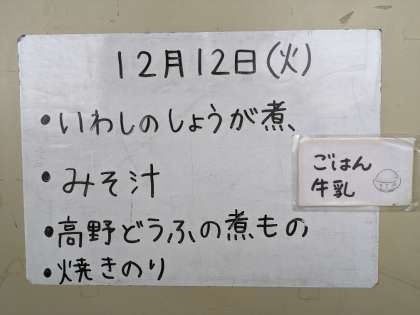 12月12日(火)
・いわしのしょうが煮、
・みそ汁
・高野どうふの煮もの
・焼きのり
ごはん
牛乳